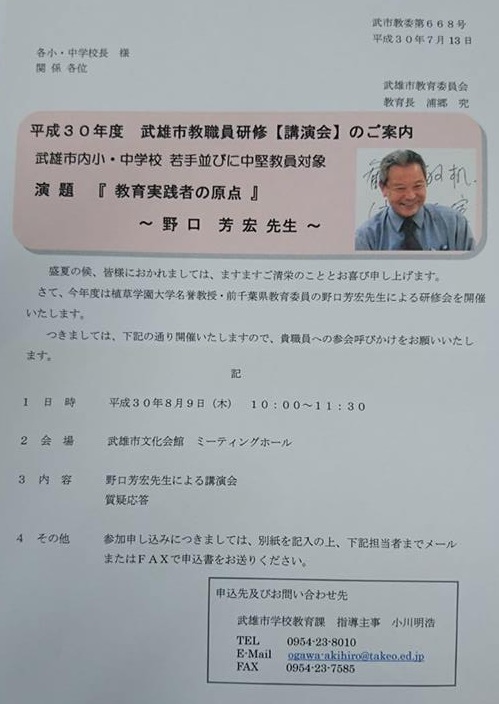 武市教委第６６８号
平成３０年７月１３日
各小・中学校長　様
関 係 各位
武雄市教育委員会
教育長　浦郷　究
平成３０年度　武雄市教職員研修【講演会】のご案内
武雄市内小・中学校 若手並びに中堅教員対象
演　題　『 教育実践者の原点 』
～ 野 口　芳 宏 先生 ～
盛夏の候、皆様におかれましては、ますますご清栄のこととお喜び申し上げます。
さて、今年度は植草学園大学名誉教授・前千葉県教育委員の野口芳宏先生による研修会を開催
いたします。
つきましては、下記の通り開催いたしますので、貴職員への参会呼びかけをお願いいたし
ます。
記
１　日　時　　平成３０年８月９日（木）　１０：００～１１：３０
２　会　場　　武雄市文化会館　ミーティングホール
３　内　容　　野口芳宏先生による講演会
質疑応答
４　その他　　参加申し込みにつきましては、別紙を記入の上、下記担当者までメール
またはＦＡＸで申込書をお送りください。
申込先及びお問い合わせ先
武雄市学校教育課　指導主事　小川明浩
TEL　0954-23-8010
E-Mail　ogawa-akihiro@takeo.ed.jp
FAX　0954-23-7585